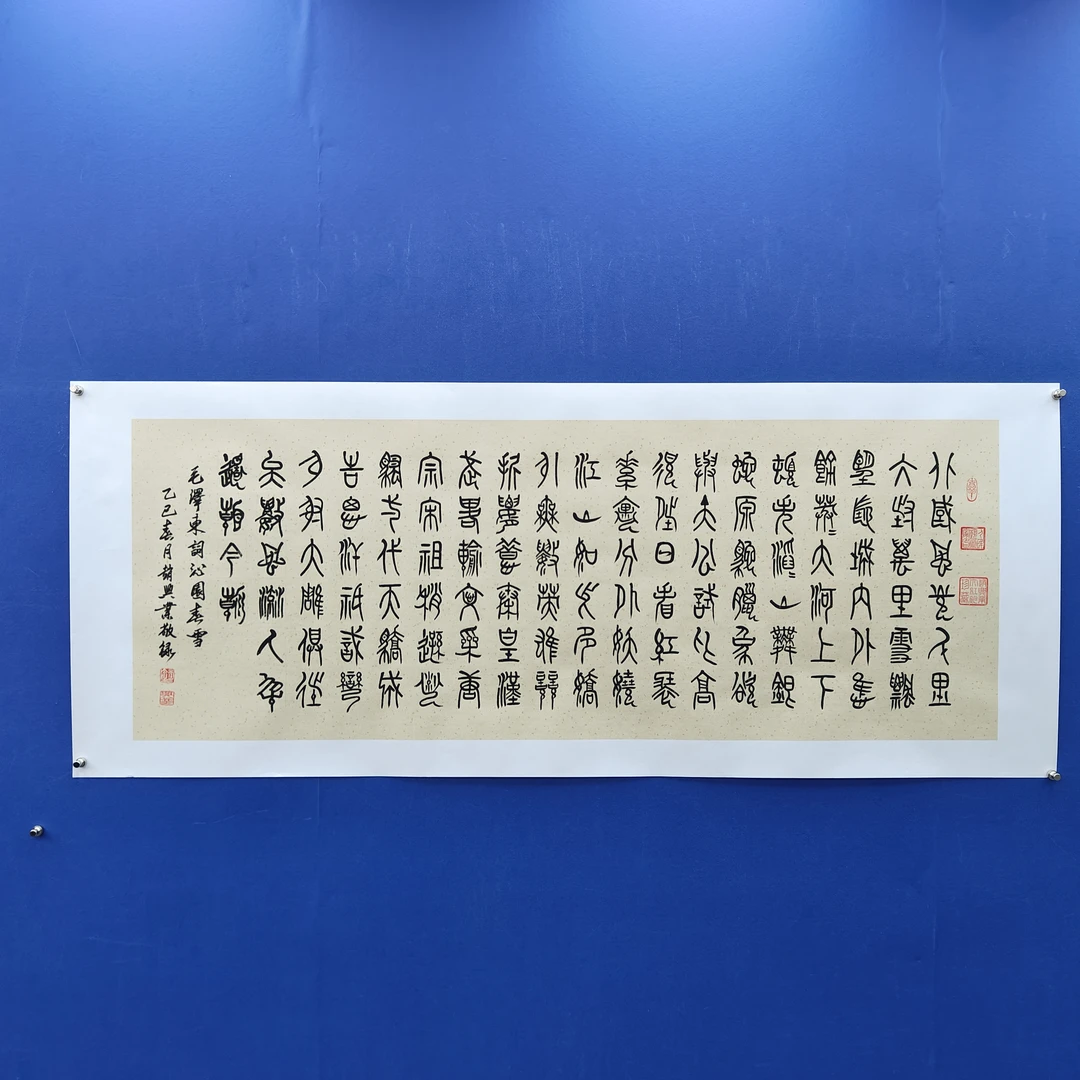 北國風光千里
冰封萬里雪飄
望長城內外惟
餘莽〻大河上下
頓失滔〻山舞銀
蛇原馳蠟象欲
與天公試比高
須晴日看紅裝
素裹分外妖嬈
江山如此多嬌
引無數英雄競
折腰惜秦皇漢
武略輸文采唐
宗宋祖稍遜風
騷一代天驕成
吉思汗祇識彎
弓射大雕俱往
矣數風流人物
還看今朝
毛澤東詞沁園春雪
乙巳春月興業敬錄